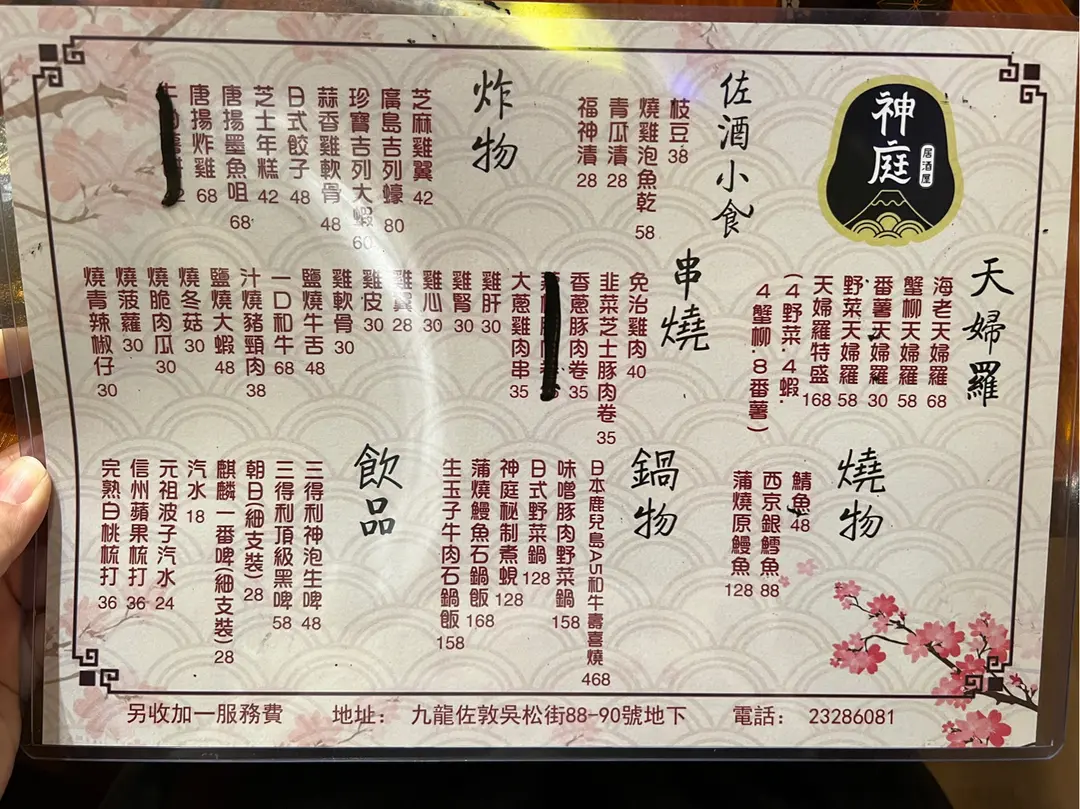 神庭
居酒屋
佐酒小食
枝豆 38
燒雞泡魚乾 58
青瓜漬 28
福神漬 28
炸物
芝麻雞翼 42
廣島吉列蠔 80
珍寶吉列大蝦 60
蒜香雞軟骨 48
日式餃子 48
芝士年糕 42
唐揚墨魚咀 68
唐揚炸雞 68
天婦羅
海老天婦羅 68
蟹柳天婦羅 58
番薯天婦羅 30
野菜天婦羅 58
天婦羅特盛 168
(4野菜.4蝦.
4蟹柳.8番薯)
串燒
免治雞肉 40
韭菜芝士豚肉卷 35
香蔥豚肉卷 35
大蔥雞肉串 35
雞肝 30
雞腎 30
雞心 30
雞翼 28
雞皮 30
雞軟骨 30
鹽燒牛舌 48
一口和牛 68
汁燒豬頸肉 38
鹽燒大蝦 48
燒冬菇 30
燒脆肉瓜 30
燒菠蘿 30
燒青辣椒仔 30
燒物
鯖魚 48
西京銀鱈魚 88
蒲燒原鰻魚 128
鍋物
日本鹿兒島A5和牛壽喜燒 468
味噌豚肉野菜鍋 158
日式野菜鍋 128
神庭秘制煮蜆 128
蒲燒鰻魚石鍋飯 168
生玉子牛肉石鍋飯 158
飲品
三得利神泡生啤 48
三得利頂級黑啤 58
朝日(細支裝) 28
麒麟一番啤(細支裝) 28
汽水 18
元祖波子汽水 24
信州蘋果梳打 36
完熟白桃梳打 36
另收加一服務費 地址： 九龍佐敦吳松街88-90號地下 電話： 23286081